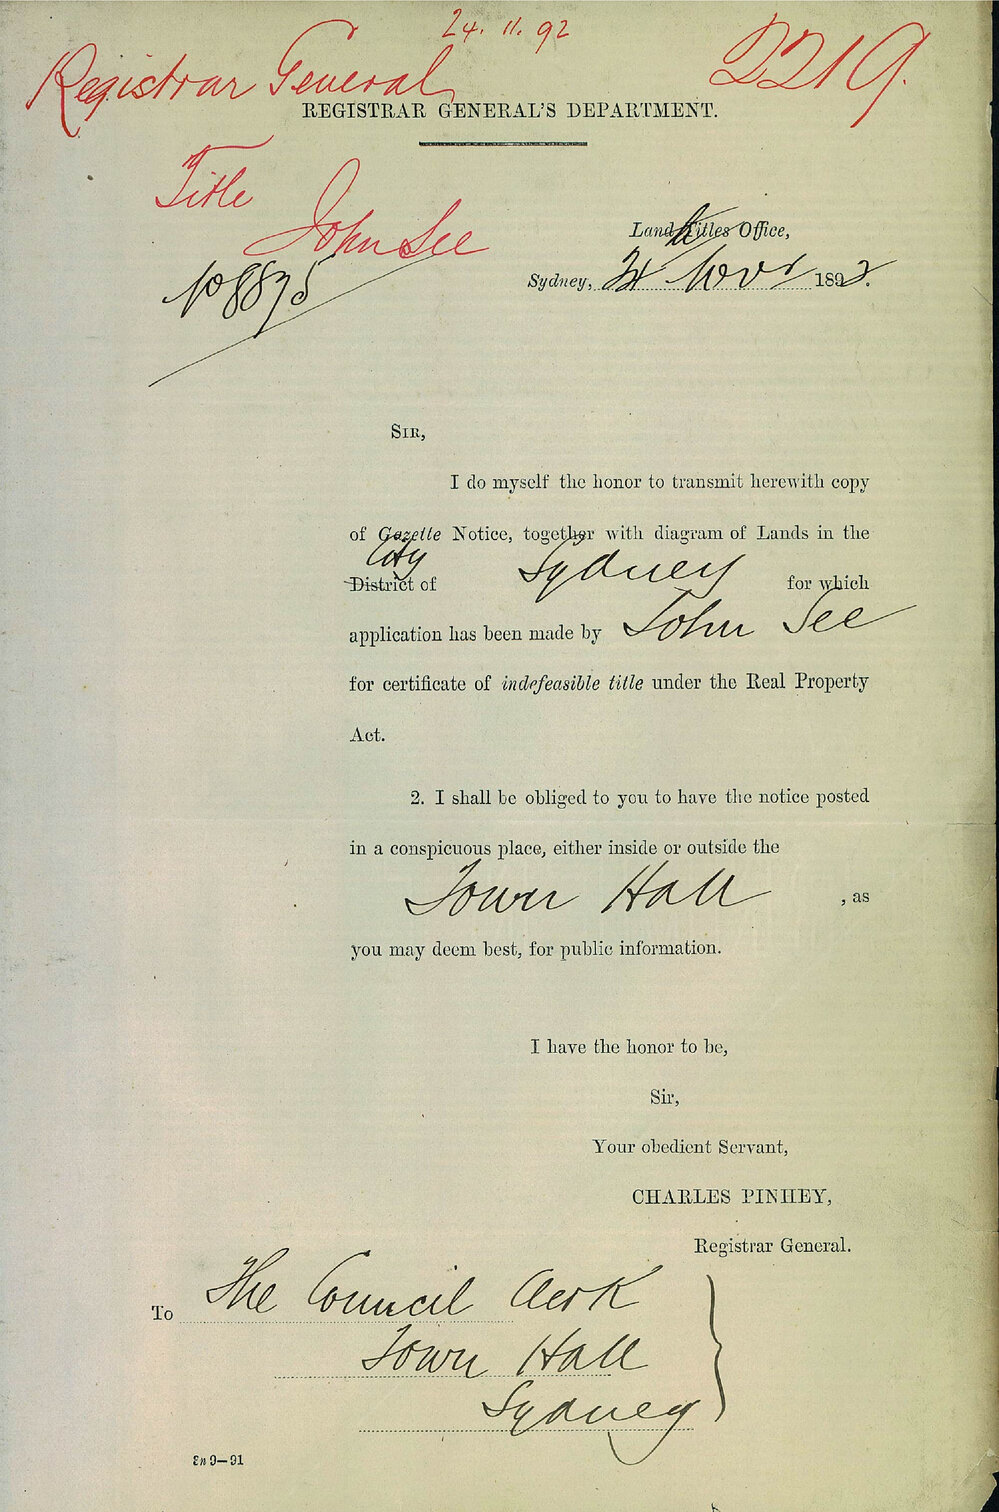 24. 11. 92
Registrar General
2219.
REGISTRAR GENERAL'S DEPARTMENT.
Title
John See
Land Titles Office,
No 8875
Sydney, 24 Novr 1892.
SIR,
I do myself the honor to transmit herewith copy
of Gazette Notice, together with diagram of Lands in the
City
District of Sydney for which
application has been made by John See
for certificate of indefeasible title under the Real Property
Act.
2. I shall be obliged to you to have the notice posted
in a conspicuous place, either inside or outside the
Town Hall , as
you may deem best, for public information.
I have the honor to be,
Sir,
Your obedient Servant,
CHARLES PINHEY,
Registrar General.
To The Council Clerk
Town Hall
Sydney
9—91